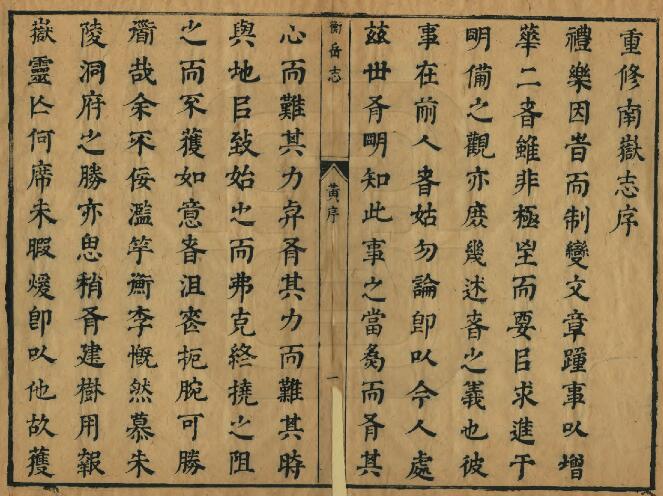 重修南嶽志序
禮樂因昔而制變文章踵事以增
華二者雖非極坒而要㠯求進于
明備之觀亦庶幾述者之義也彼
事在前人者姑勿論卽以今人處
茲世有明知此事之當為而有其
衡岳志
黃序
一
心而難其力弅有其力而難其時
與地㠯致始之而弗克終撓之阻
之而不獲如意者沮喪扼腕可勝
衟哉余不佞濫竽衡李慨然慕朱
陵洞府之勝亦思稍有建樹用報
嶽靈亾何席未暇煖卽以他故獲